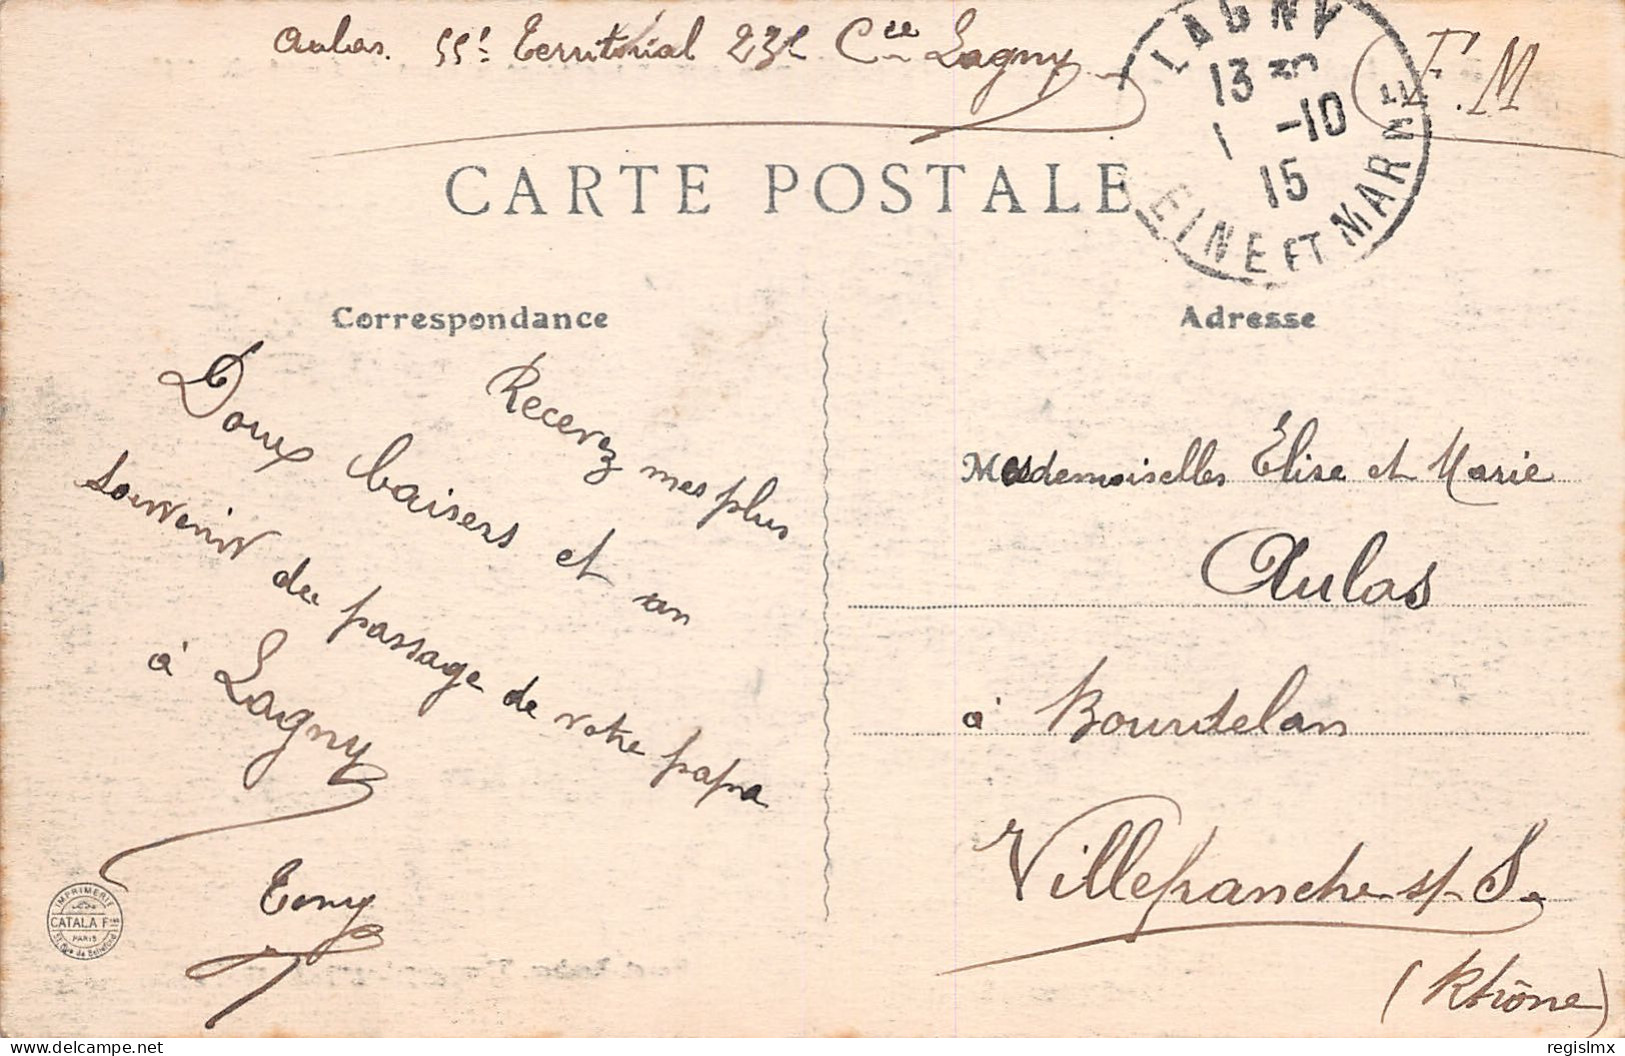 Aulas. 55e Territorial 23e Cie Lagny
F.M
LAGNY
13
1 -10
15
SEINE ET MARNE
CARTE POSTALE
Correspondance
Recevez mes plus
Doux baisers et un
souvenir du passage de votre papa
à Lagny
Tony
IMPRIMERIE
CATALA Fres
PARIS
Adresse
Mesdemoiselles Élise et Marie
Aulas
à Bourdelan
Villefranche s/ S.
(Rhône)
delcampe.net
regislmx